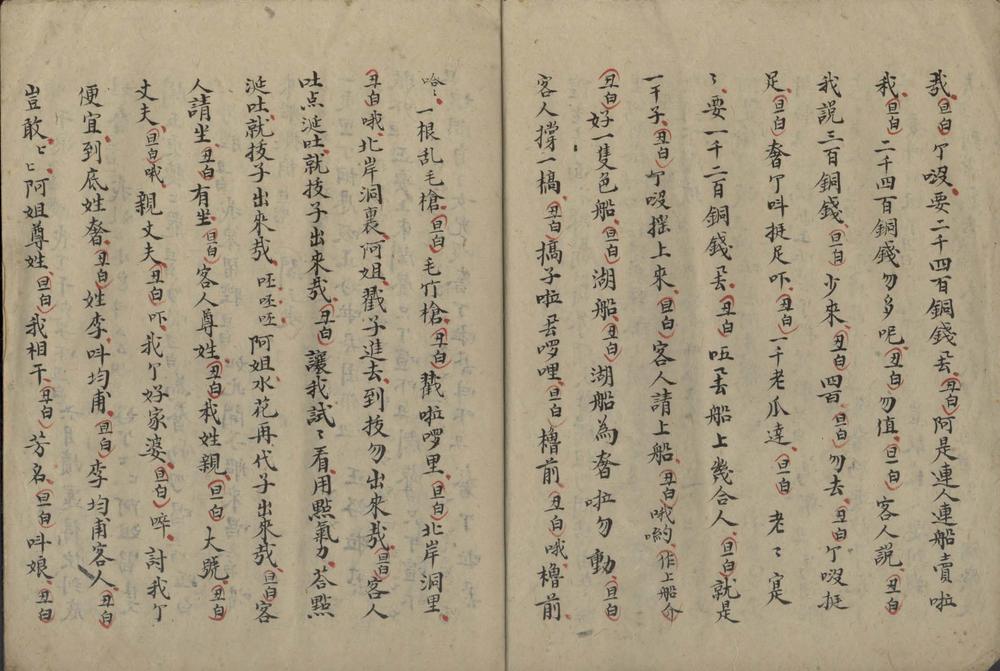 我旦白丫哎要二千四百銅錢去丑白阿是連人連船賣啦
我旦白二千四百銅錢勿多呢丑白勿值旦白客人説丑白
我説三百銅錢旦白少來丑白四百旦白勿去丑白丫哎挺
足旦白奢丫呌挺足吓丑白一千老爪達旦白老〻寔
〻要一千二百銅錢丑白唔去船上幾合人旦白就是
一干子丑白丫哎摇上來旦白客人請上船丑白哦喲作上船介
丑白好一隻色船旦白湖船丑白湖船為奢啦勿動旦白
客人撐一槁丑白搞子啦去啰哩旦白櫓前丑白哦櫓前
哈〻一根乱毛槍旦白毛竹槍丑白戳啦啰里旦白北岸洞里
丑白哦北岸洞裏阿姐戳子進去到技勿出來哉旦白客人
吐点涎吐就技子出來哉丑白讓我試〻看用點氣力荅點
涎吐就技子出來哉呸呸呸阿姐水花再代子出來哉旦白客
人請坐丑白有坐旦白客人尊姓丑白我姓親旦白大號丑白
丈夫旦白哦親丈夫丑白吓我丫好家婆旦白啐討我丫
便宜到底姓奢丑白姓李呌均甫旦白李均甫客人丑白
豈敢〻〻阿姐尊姓旦白我相干丑白芳名旦白呌娘丑白